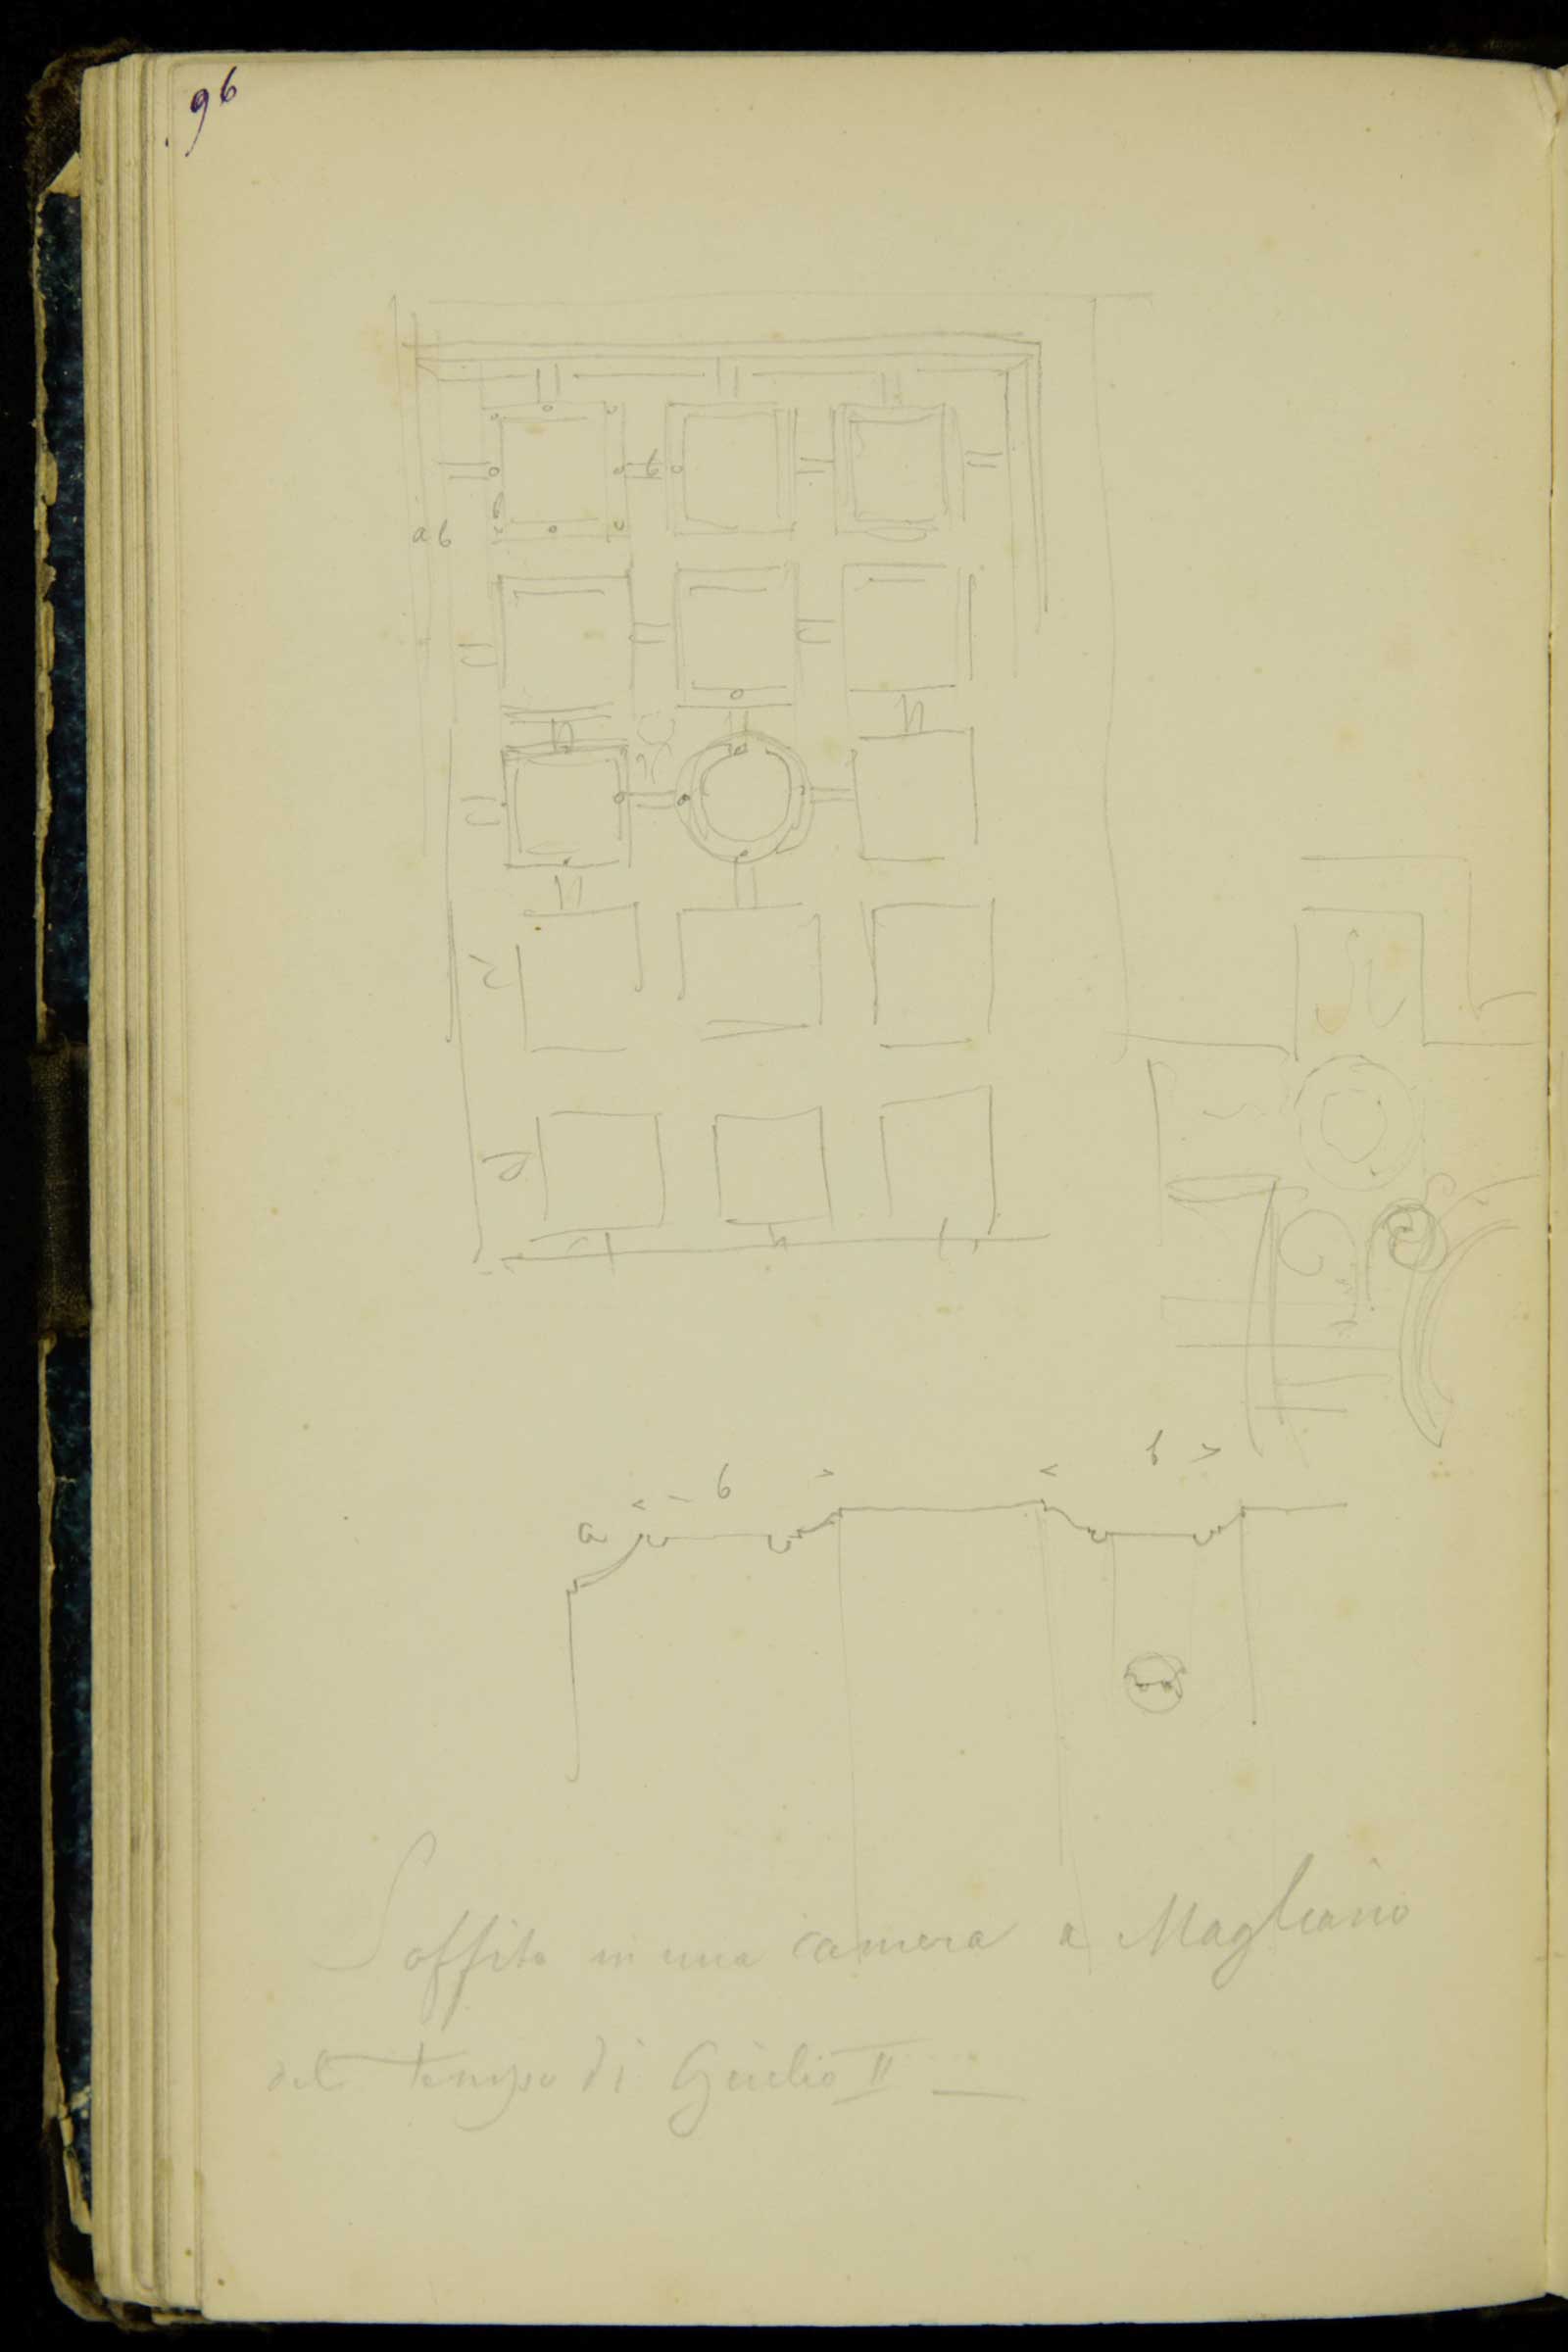 96
b
a b
b b
a
Soffito in una camera a Magliano
del tempo di Giulio II